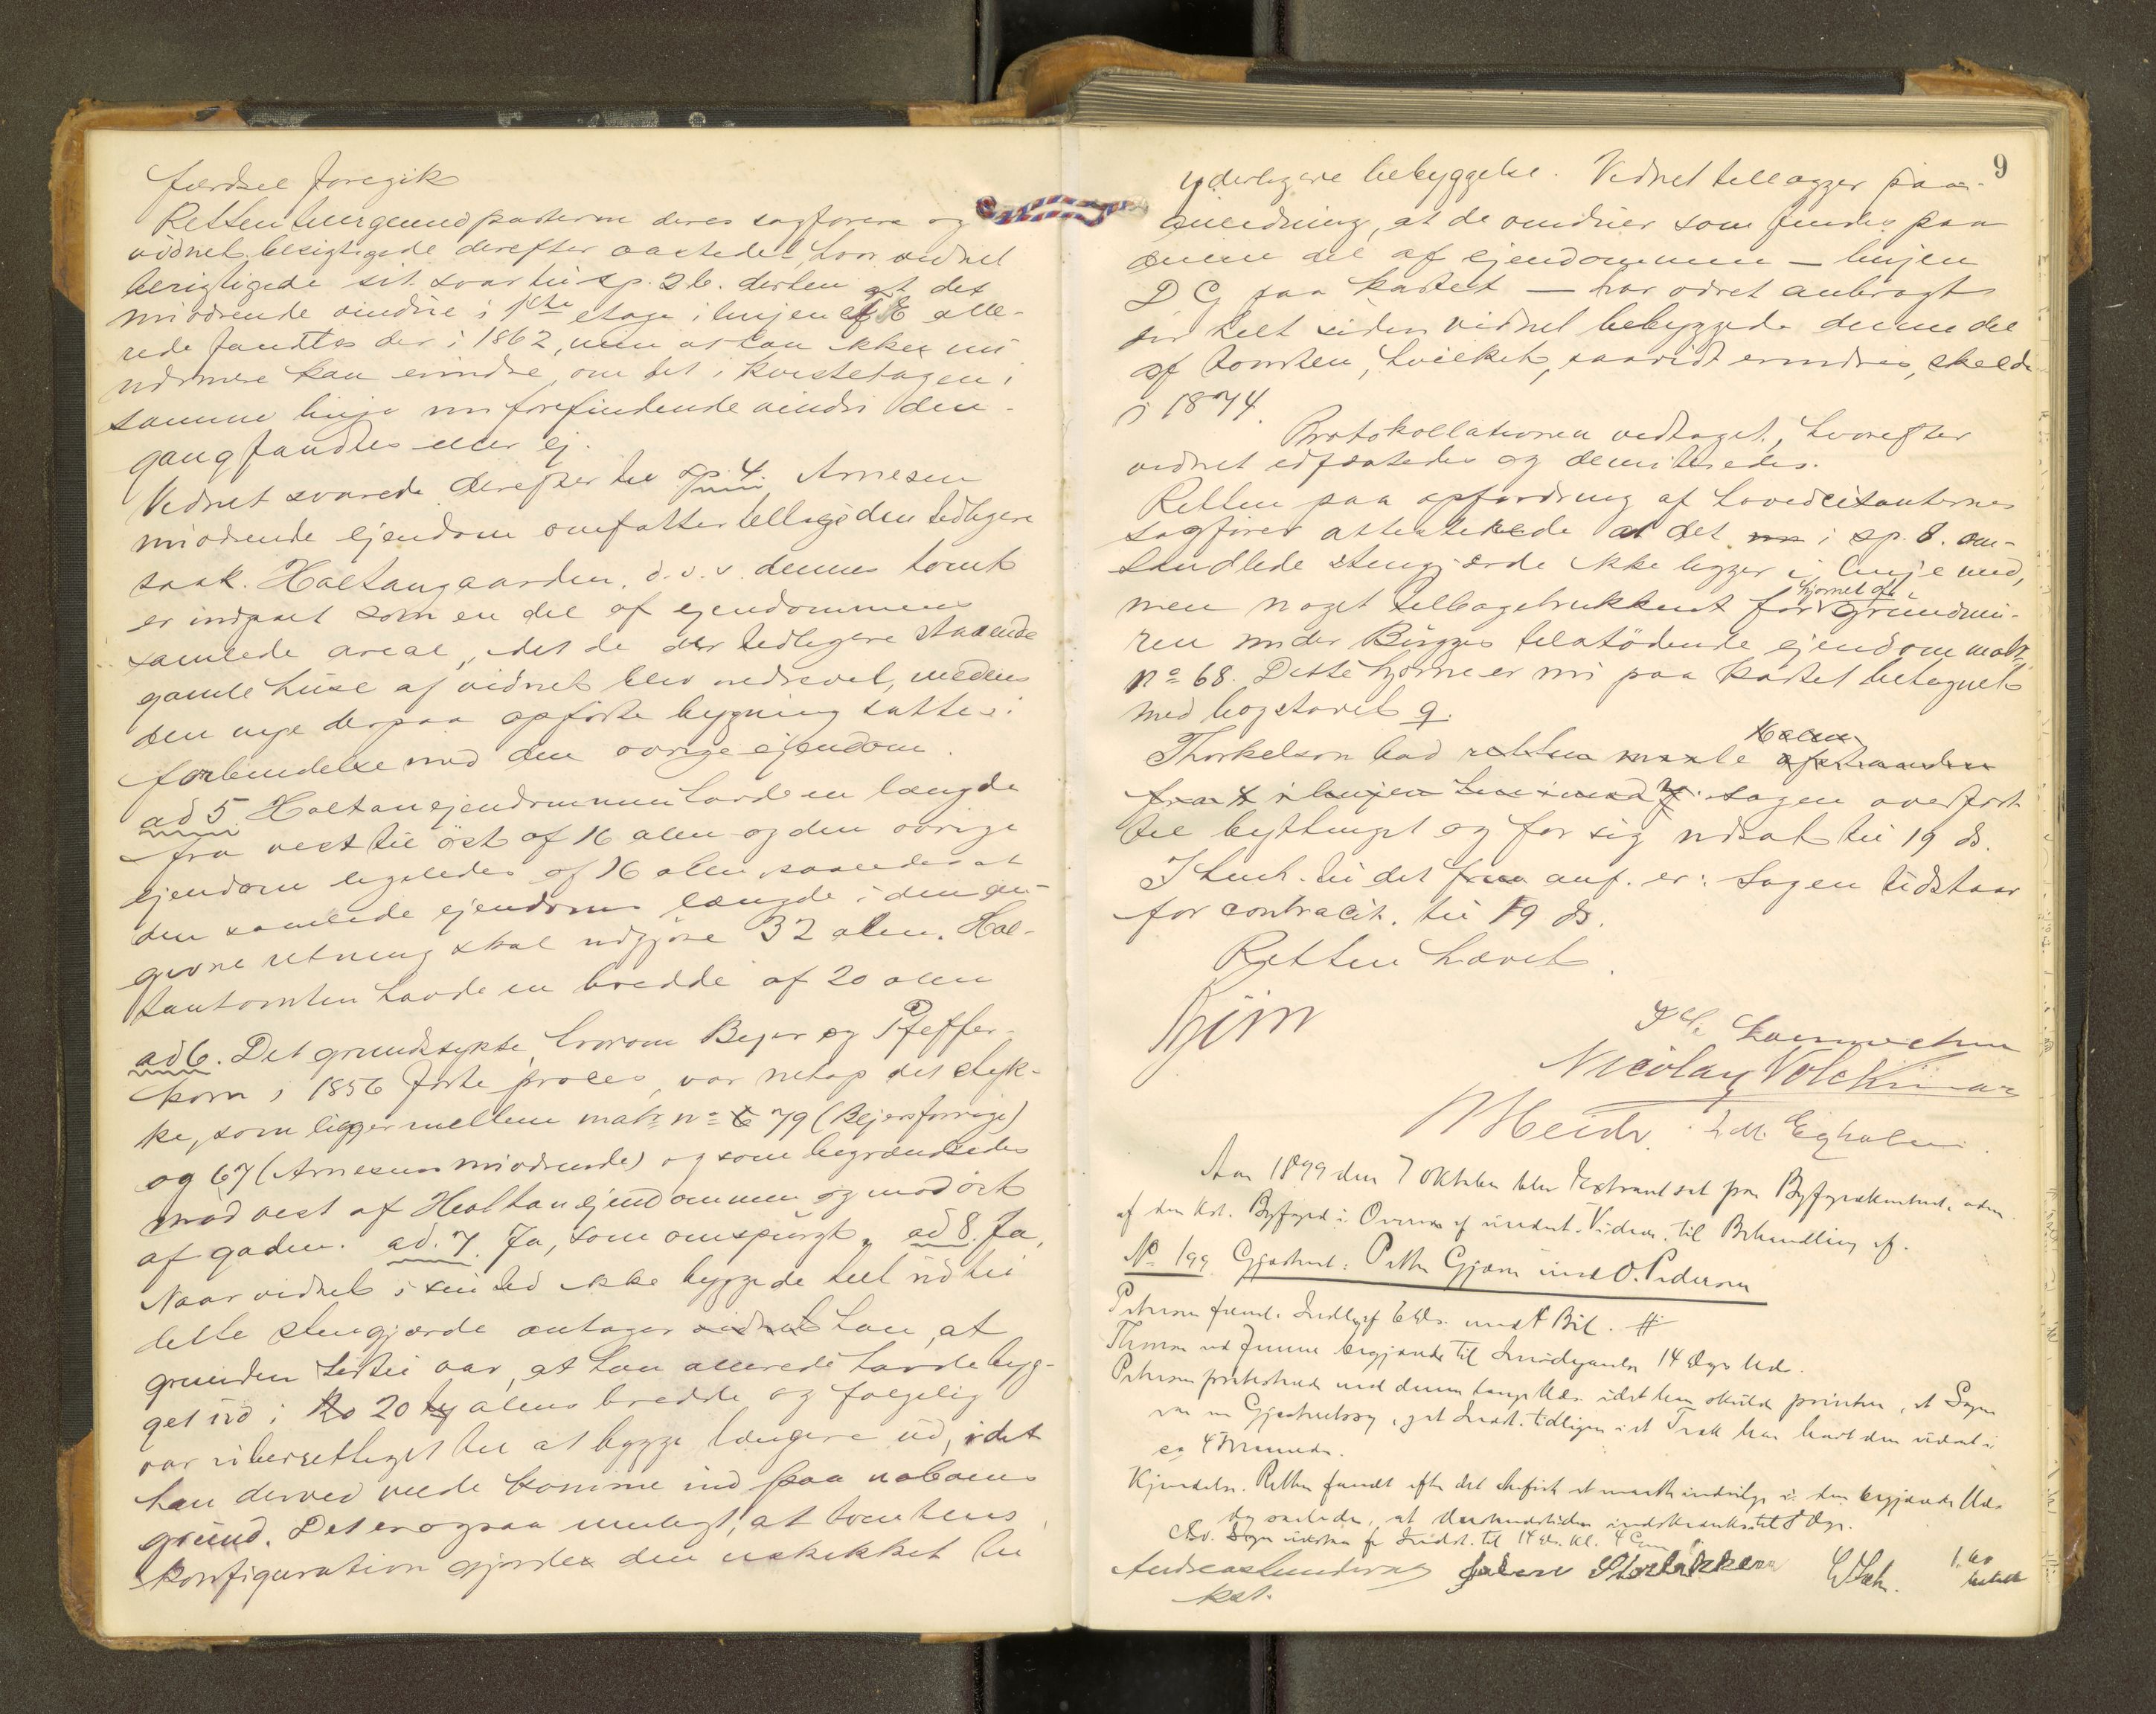 færdsel foregik
Retten tillligemed parterne deres sagförere og
vidnet besigtigede derefter aastedet, hvor vidnet
berigtigede sit svar til sp. 2 b. derhen at det
nuværende vindue i 1ste etage i linjen ef E alle-
rede fandtes der i 1862, men at han ikke nu
nærmere kan erindre, om det i kvistetagen i
samme linje nu forefindende vindu den-
gang fandtes eller ej.
Vidnet svarede derefter til sp. 4. Arnesens
nuværende ejendom omfatter tillige den tidligere
saak. Haltangaarden, d. v. s. dennes tomt
er indgaaet som en del af ejendommens
samlede areal, idet de der tidligere staaende
gamle huse af vidnet blev nedrevet, medens
den nye derpaa opförte bygning sattes i
forbindelse med den övrige ejendom.
ad 5 Haltanejendommen havde en længde
fra vest til öst af 16 alen og den övrige
ejendom ligeledes af 16 alen, saaledes at
den samlede ejendoms længde i den an-
givne retning skal udgjöre 32 alen. Hal-
tantomten havde en bredde af 20 alen
ad 6. Det grundstykke, hvorom Bejer og Pfeffer-
korn i 1856 förte proces, var netop det styk-
ke, som ligger mellem matr. no 79 (Bejers forrige)
og 67 (Arnesens nuværende) og som begrændsedes
mod vest af Haltanejendommen og mod öst
af gaden. ad. 7. Ja, som omspurgt. ad 8. Ja,
Naar vidnet i sin tid ikke byggede helt ud til
dette stengjærde antager vidnet han, at
grunden hertil var, at han allerede havde byg-
get ud i 20 alens bredde og fölgelig
var uberettiget til at bygge længere ud, idet
han derved vilde komme ind paa naboens
grund. Det er ogsaa muligt, at tomtens
konfiguration gjorde den uskikket til
9
yderligere bebyggelse. Vidnet tillægger paa
anledning, at de vinduer som findes paa
denne del af ejendommen – linjen
D G paa kartet – har været anbragt
der helt siden vidnet bebyggede denne del
af tomten, hvilket, saavidt erindres, skede
i 1874.
Protokollationen vedtaget, hvorefter
vidnet edfæstedes og demitteredes.
Retten paa opfordring af hovedcitanternes
sagförer attesterede at det i sp. 8. om-
handlede stengjærde ikke ligger i linje med,
men noget tilbagetrukkent for hjørnet af grundmu-
ren under Bügges tilstödende ejendom matr.
no 68. Dette hjörne er nu paa kartet betegnet
med bogstavet q.
Thorkelson bad sagen overfört
til bytinget og for sig udsat til 19 ds.
I henh. til det anf. er: Sagen udstaar
for contracit. til 19 ds.
Retten hævet.
Nicolay Volckmar
Aar 1899 den 7 Oktober blev Extraret sat paa Byfogedkontoret, adm.
af den kst. Byfoged i Overvær af undert. Vidner, til Behandling af.
No 199. Gjæsteret: Petter Gjærn imod O. Pedersen
Petersen freml. Indlæg af 6 ds. med 1 Bil. #
Petersen protesterede mod denne lange Uds. idet han skulde paavise, at Sagen
var en Gjæsteretssag, og at Indst. tidligere i et Træk har havt den udsat i
ca 4 Maaneder.
Kjendelse. Retten fandt efter det anførte at maatte indvilge i den begjærede Uds.
dog saaledes, at Udsættelsestiden indskrænkes til 8 Dge.
kst.